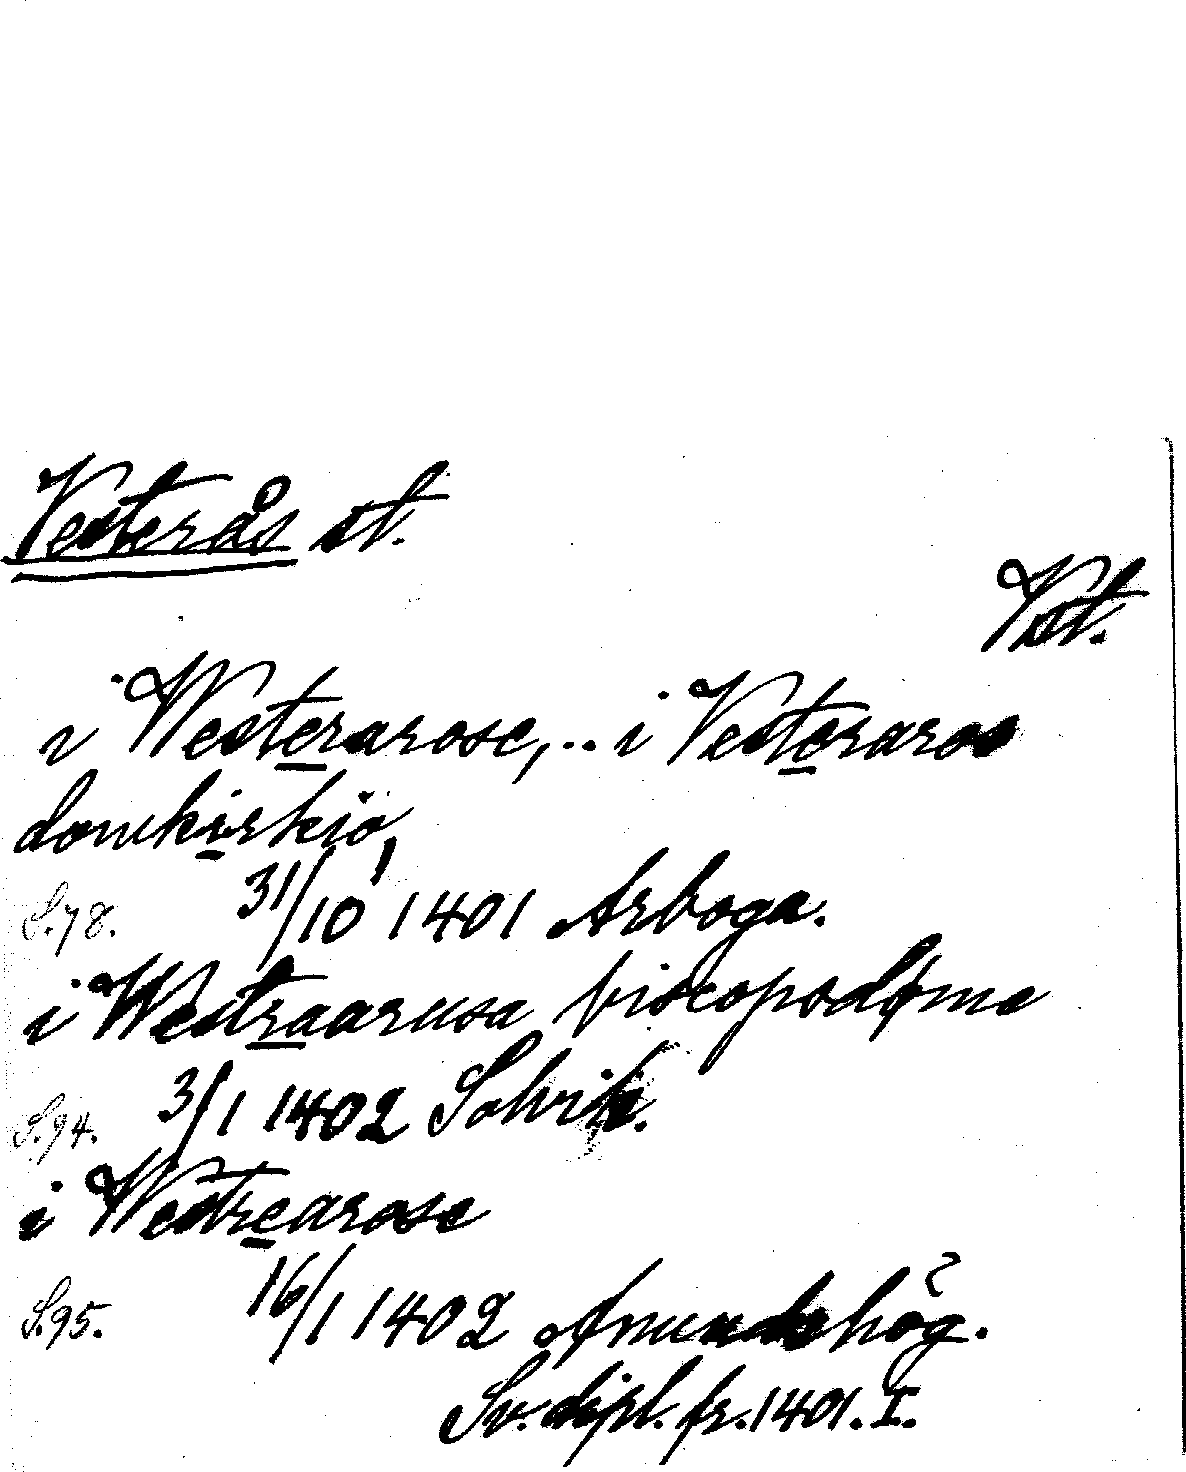 Vesterås st.
Vst.
i Westerarose,... i Vesteraros
domkirkiö,
S.78. 31/10 1401 Arboga.
i Westraarusa biscopsdøme
S.94. 3/1 1402 Solvik.
i Westrearose
S.95. 16/1 1402 Amundehög.
Sv. dipl. fr. 1401. I.